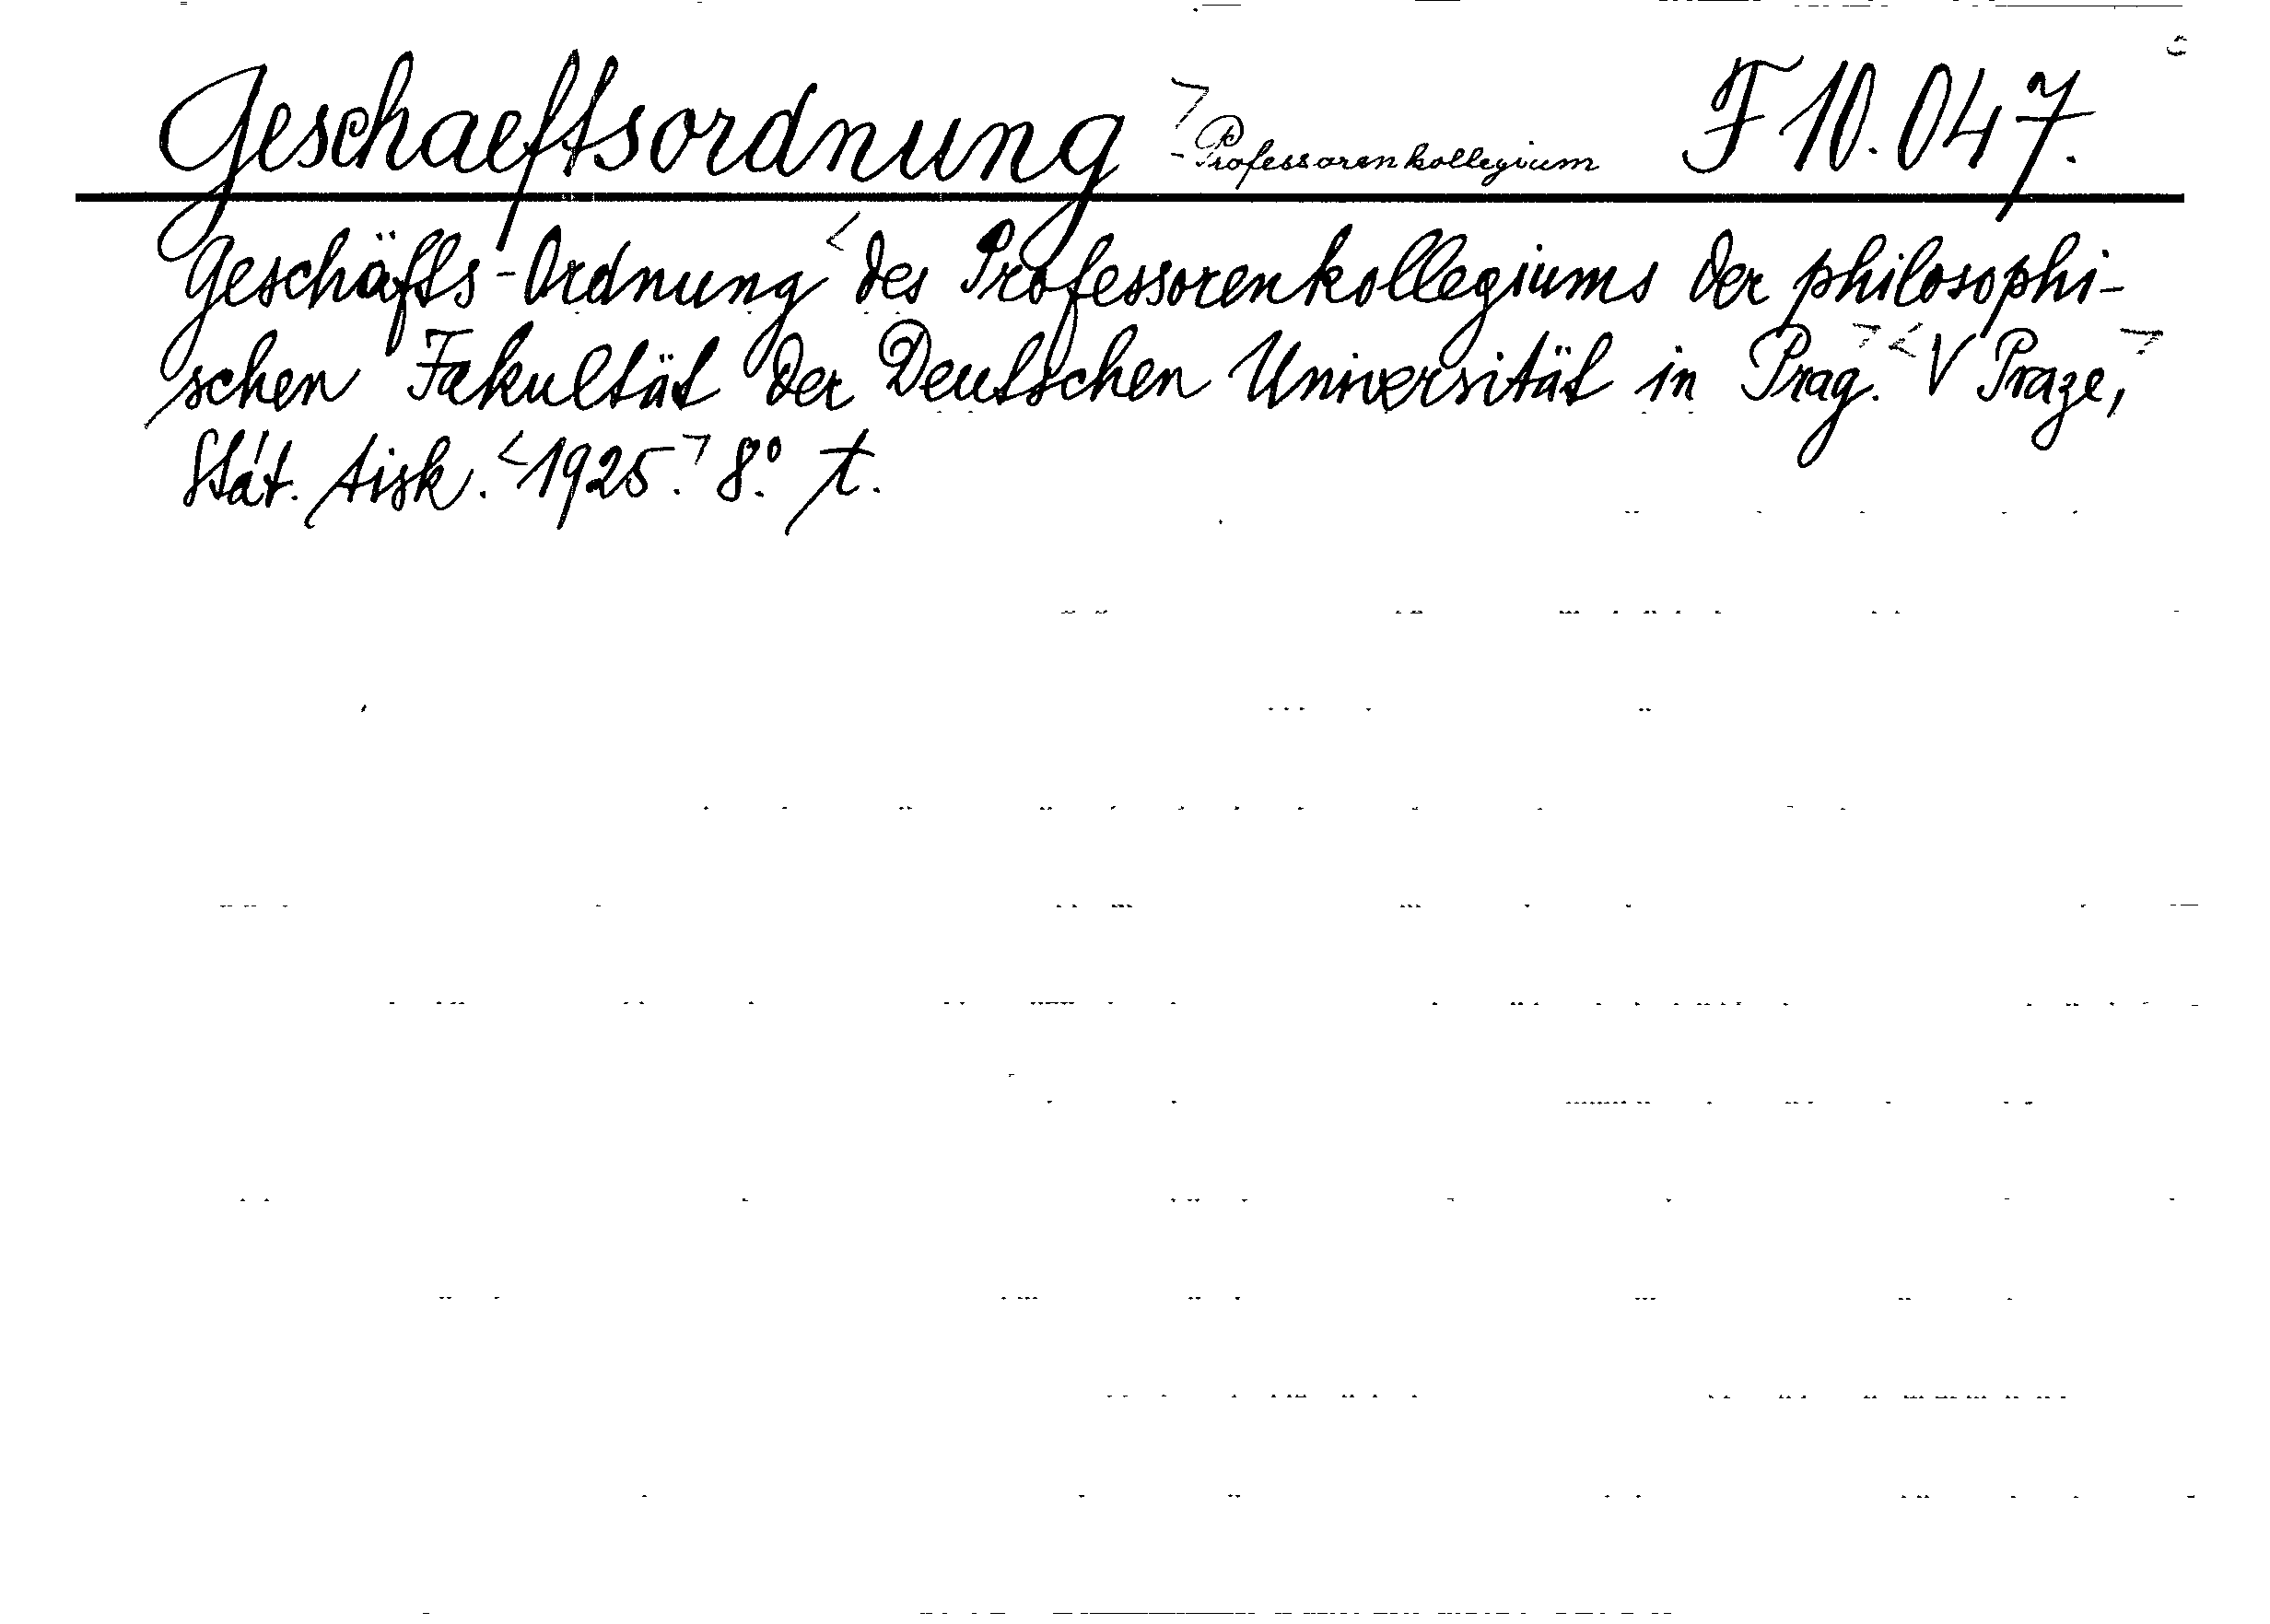 Geschaeftsordnung - Professorenkollegium F 10.047.
Geschäfts-Ordnung des Professorenkollegiums der philosophi-
schen Fakultät der Deutschen Universität in Prag. V Praze,
Stát. tisk. 1925. 8° t.